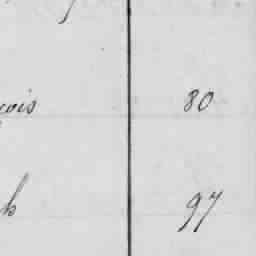 çois 80
h 97